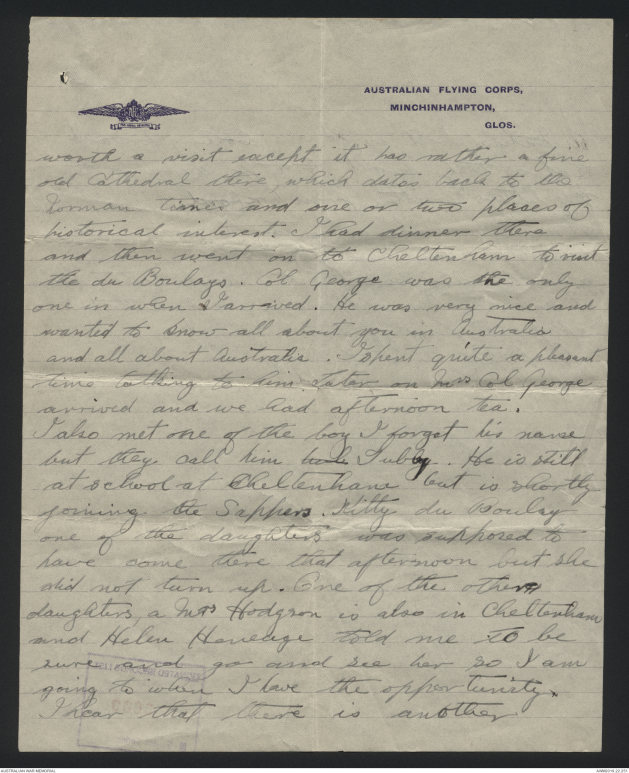 AUSTRALIAN FLYING CORPS,
MINCHINHAMPTON,
GLOS.
worth a visit except it has rather a fine
old Cathedral there, which dates back to the
Norman times and one or two places of
historical interest. I had dinner there
and then went on to Cheltenham to visit
the du Boulays. Col George was the only
one in when I arrived. He was very nice and
wanted to know all about you in Australia
and all about Australia. I spent quite a pleasant
time talking to him. Later on Mrs Col George
arrived and we had afternoon tea.
I also met one of the boy I forget his name
but they call him Tubby. He is still
at school at Cheltenham but is shortly
joining the Sappers. Kitty du Boulay
one of the daughters was supposed to
have come there that afternoon but she
did not turn up. One of the other
daughters, a Mrs Hodgson is also in Cheltenham
and Helen Heneage told me to be
sure and go and see her so I am
going to when I have the opportunity.
I hear that there is another
AUSTRALIAN WAR MEMORIAL